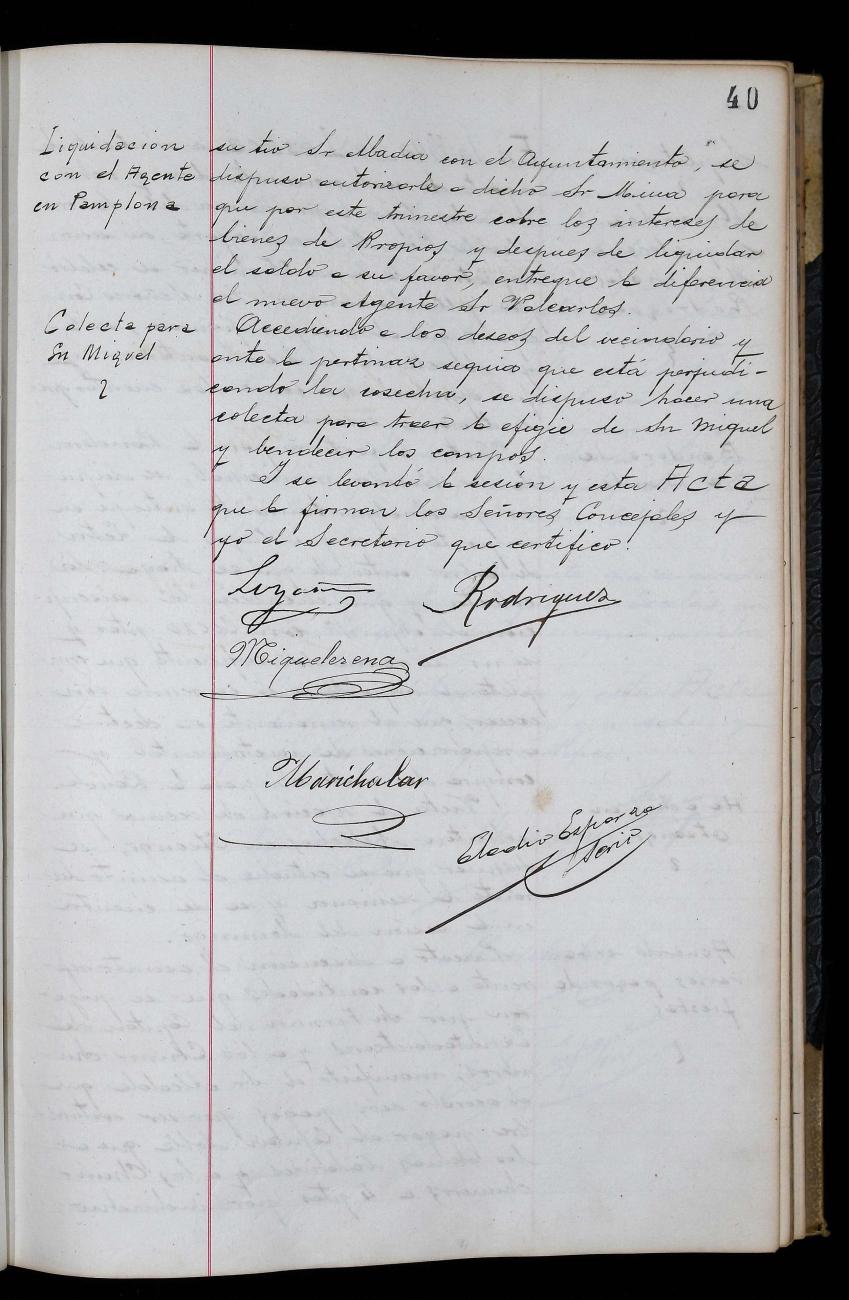 40
Liquidacion
con el Agente
en Pamplona
su tio Sr Abadia con el Ayuntamiento, se
dispuso autorizarle a dicho Sr Mina para
que por este trimestre cobre los intereses de
bienes de Propios y despues de liquidar
el saldo a su favor, entregue la diferencia
al nuevo Agente Sr Valcarlos.
Colecta para
Sn Miguel
Accediendo a los deseos del vecindario y
ante la pertinaz sequia que está perjudi-
cando la cosecha, se dispuso hacer una
colecta para traer la efigie de Sn Miguel
y bendecir los campos.
Y se levantó la sesión y esta Acta
que la firman los Señores Concejales y
yo el Secretario que certifico.
Rodriguez
Miquelerena
Marichalar
Eladio Esparza
Serio